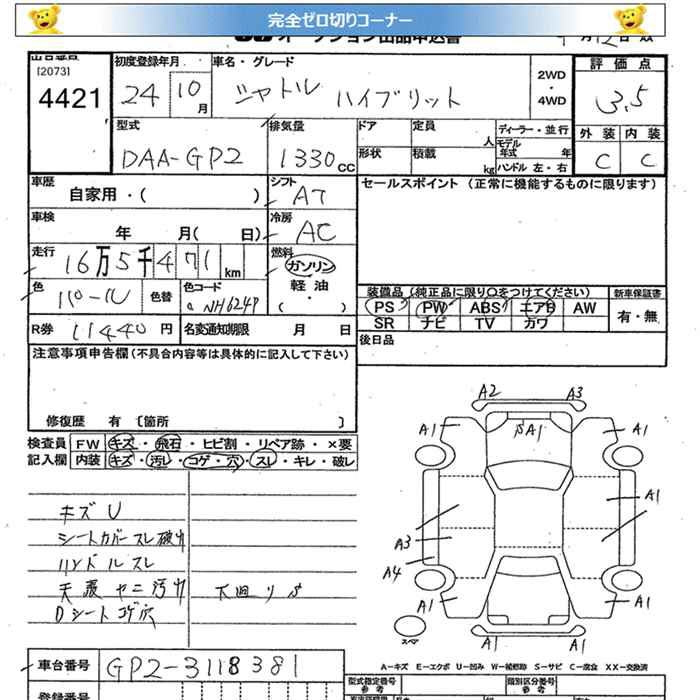 完全ゼロ切りコーナー
オークション出品申込書
出品番号
[2073]
4421
初度登録年月
24 10 月
車名・グレード
シャトル ハイブリット
2WD
・
4WD
評価点
3.5
型式
DAA-GP2
排気量
1330 CC
ドア
定員
人
ディーラー・並行
モデル年式 年
外装 内装
C C
形状
積載
kg
ハンドル 左・右
車歴
自家用・( )
シフト
AT
セールスポイント (正常に機能するものに限ります)
車検
年 月( 日)
冷房
AC
走行
16万5千471 km
燃料
ガソリン
軽油
・
( )
色
パール
色替
色コード
NH624P
装備品 (純正品に限り○をつけてください)
新車保証書
PS PW ABS エアB AW
有・無
SR ナビ TV カワ
R券 11440 円
名変通知期限 月 日
後日品
注意事項申告欄(不具合内容等は具体的に記入して下さい)
修復歴 有 〔箇所 〕
検査員
記入欄
FW キズ・飛石・ヒビ割・リペア跡・×要
内装 キズ・汚レ・コゲ・穴・スレ・キレ・破レ
キズU
シートカバースレ破レ
ハンドルスレ
天張ヤニ汚レ
下廻りS
Dシートコゲ穴
A2 A3
A1 A1
A1
A1
A3
A4
A1 A1
A1 A1
スペア
A－キズ E－エクボ U－凹み W－補修跡 S－サビ C－腐食 XX－交換済
車台番号
GP2-3118381
登録番号
型式指定番号
参考
類別区分番号
参考